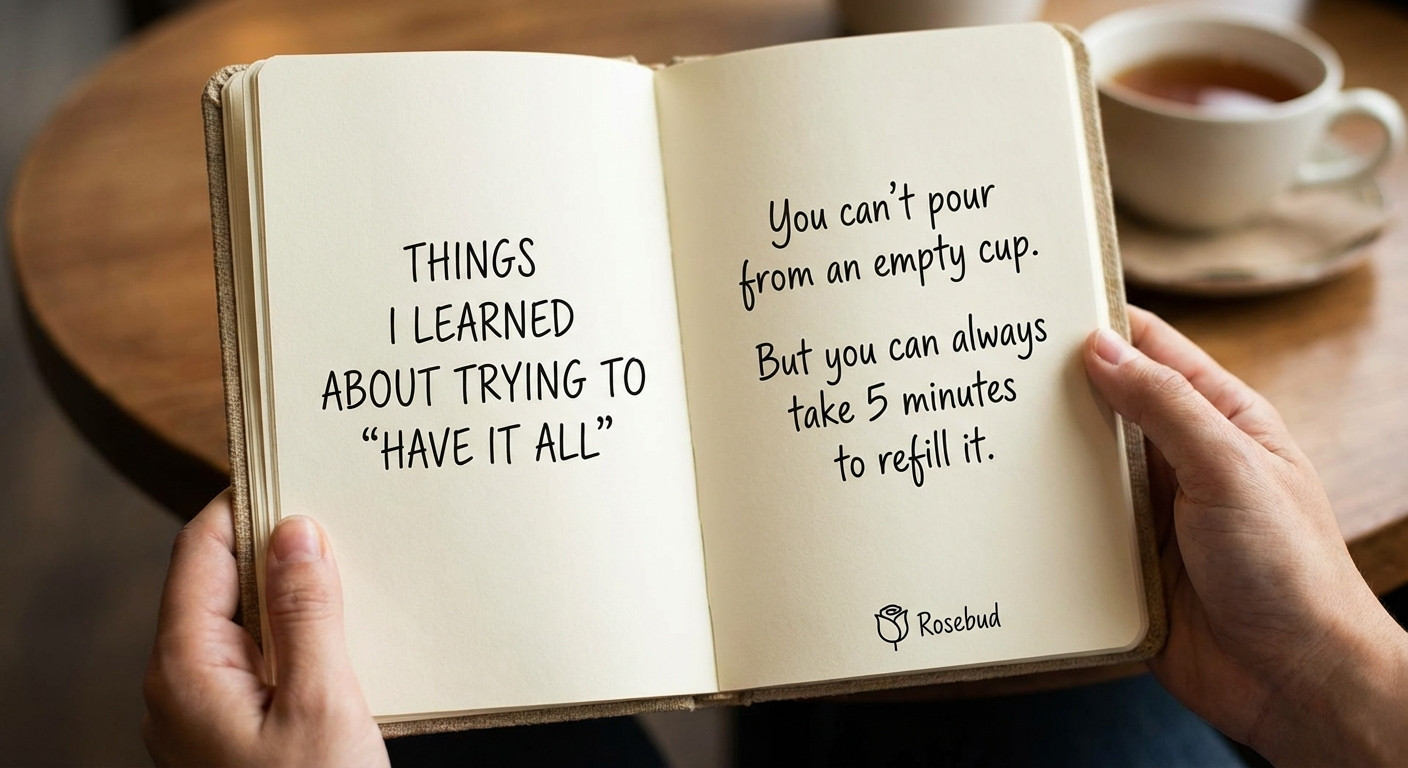 THINGS
I LEARNED
ABOUT TRYING TO
“HAVE IT ALL”
You can’t pour
from an empty cup.
But you can always
take 5 minutes
to refill it.
Rosebud